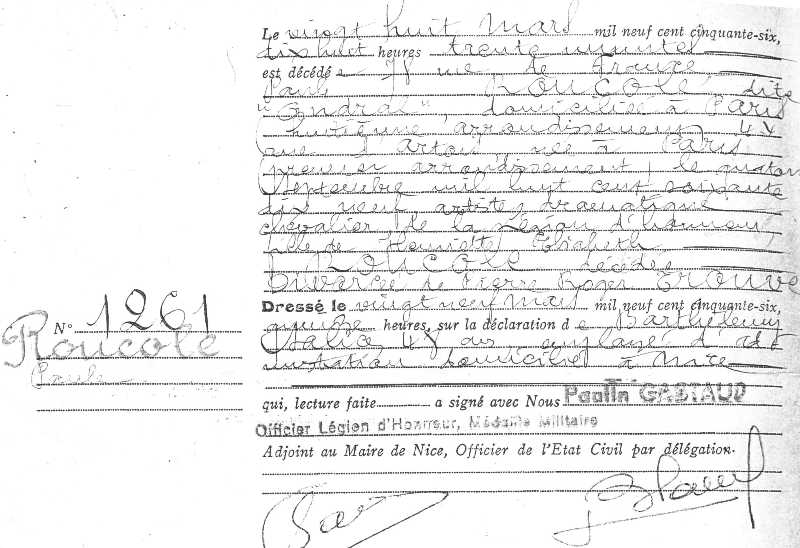 Le vingt huit Mars mil neuf cent cinquante-six,
dix huit heures trente minutes
est décédée rue de France
Paule ROUCOLE dite
"Andral", domiciliée à Paris
huitième arrondissement,
rue d'Artois née à Paris
premier arrondissement, le quatorze
Septembre mil huit cent soixante
dix neuf, artiste dramatique
chevalier de la Légion d'honneur,
fille de Henriette Elisabeth
ROUCOLE décédée
Divorcée de Pierre Roger TROUVE
Dressé le vingt neuf Mars mil neuf cent cinquante-six,
N° 1261
quinze heures, sur la déclaration de Barthelemy
Roucole
ans employé d'
Paule
domicilié à Nice
qui, lecture faite a signé avec Nous Paulin GASTAUD
Officier Légion d'Honneur, Médaille Militaire
Adjoint au Maire de Nice, Officier de l'Etat Civil par délégation.